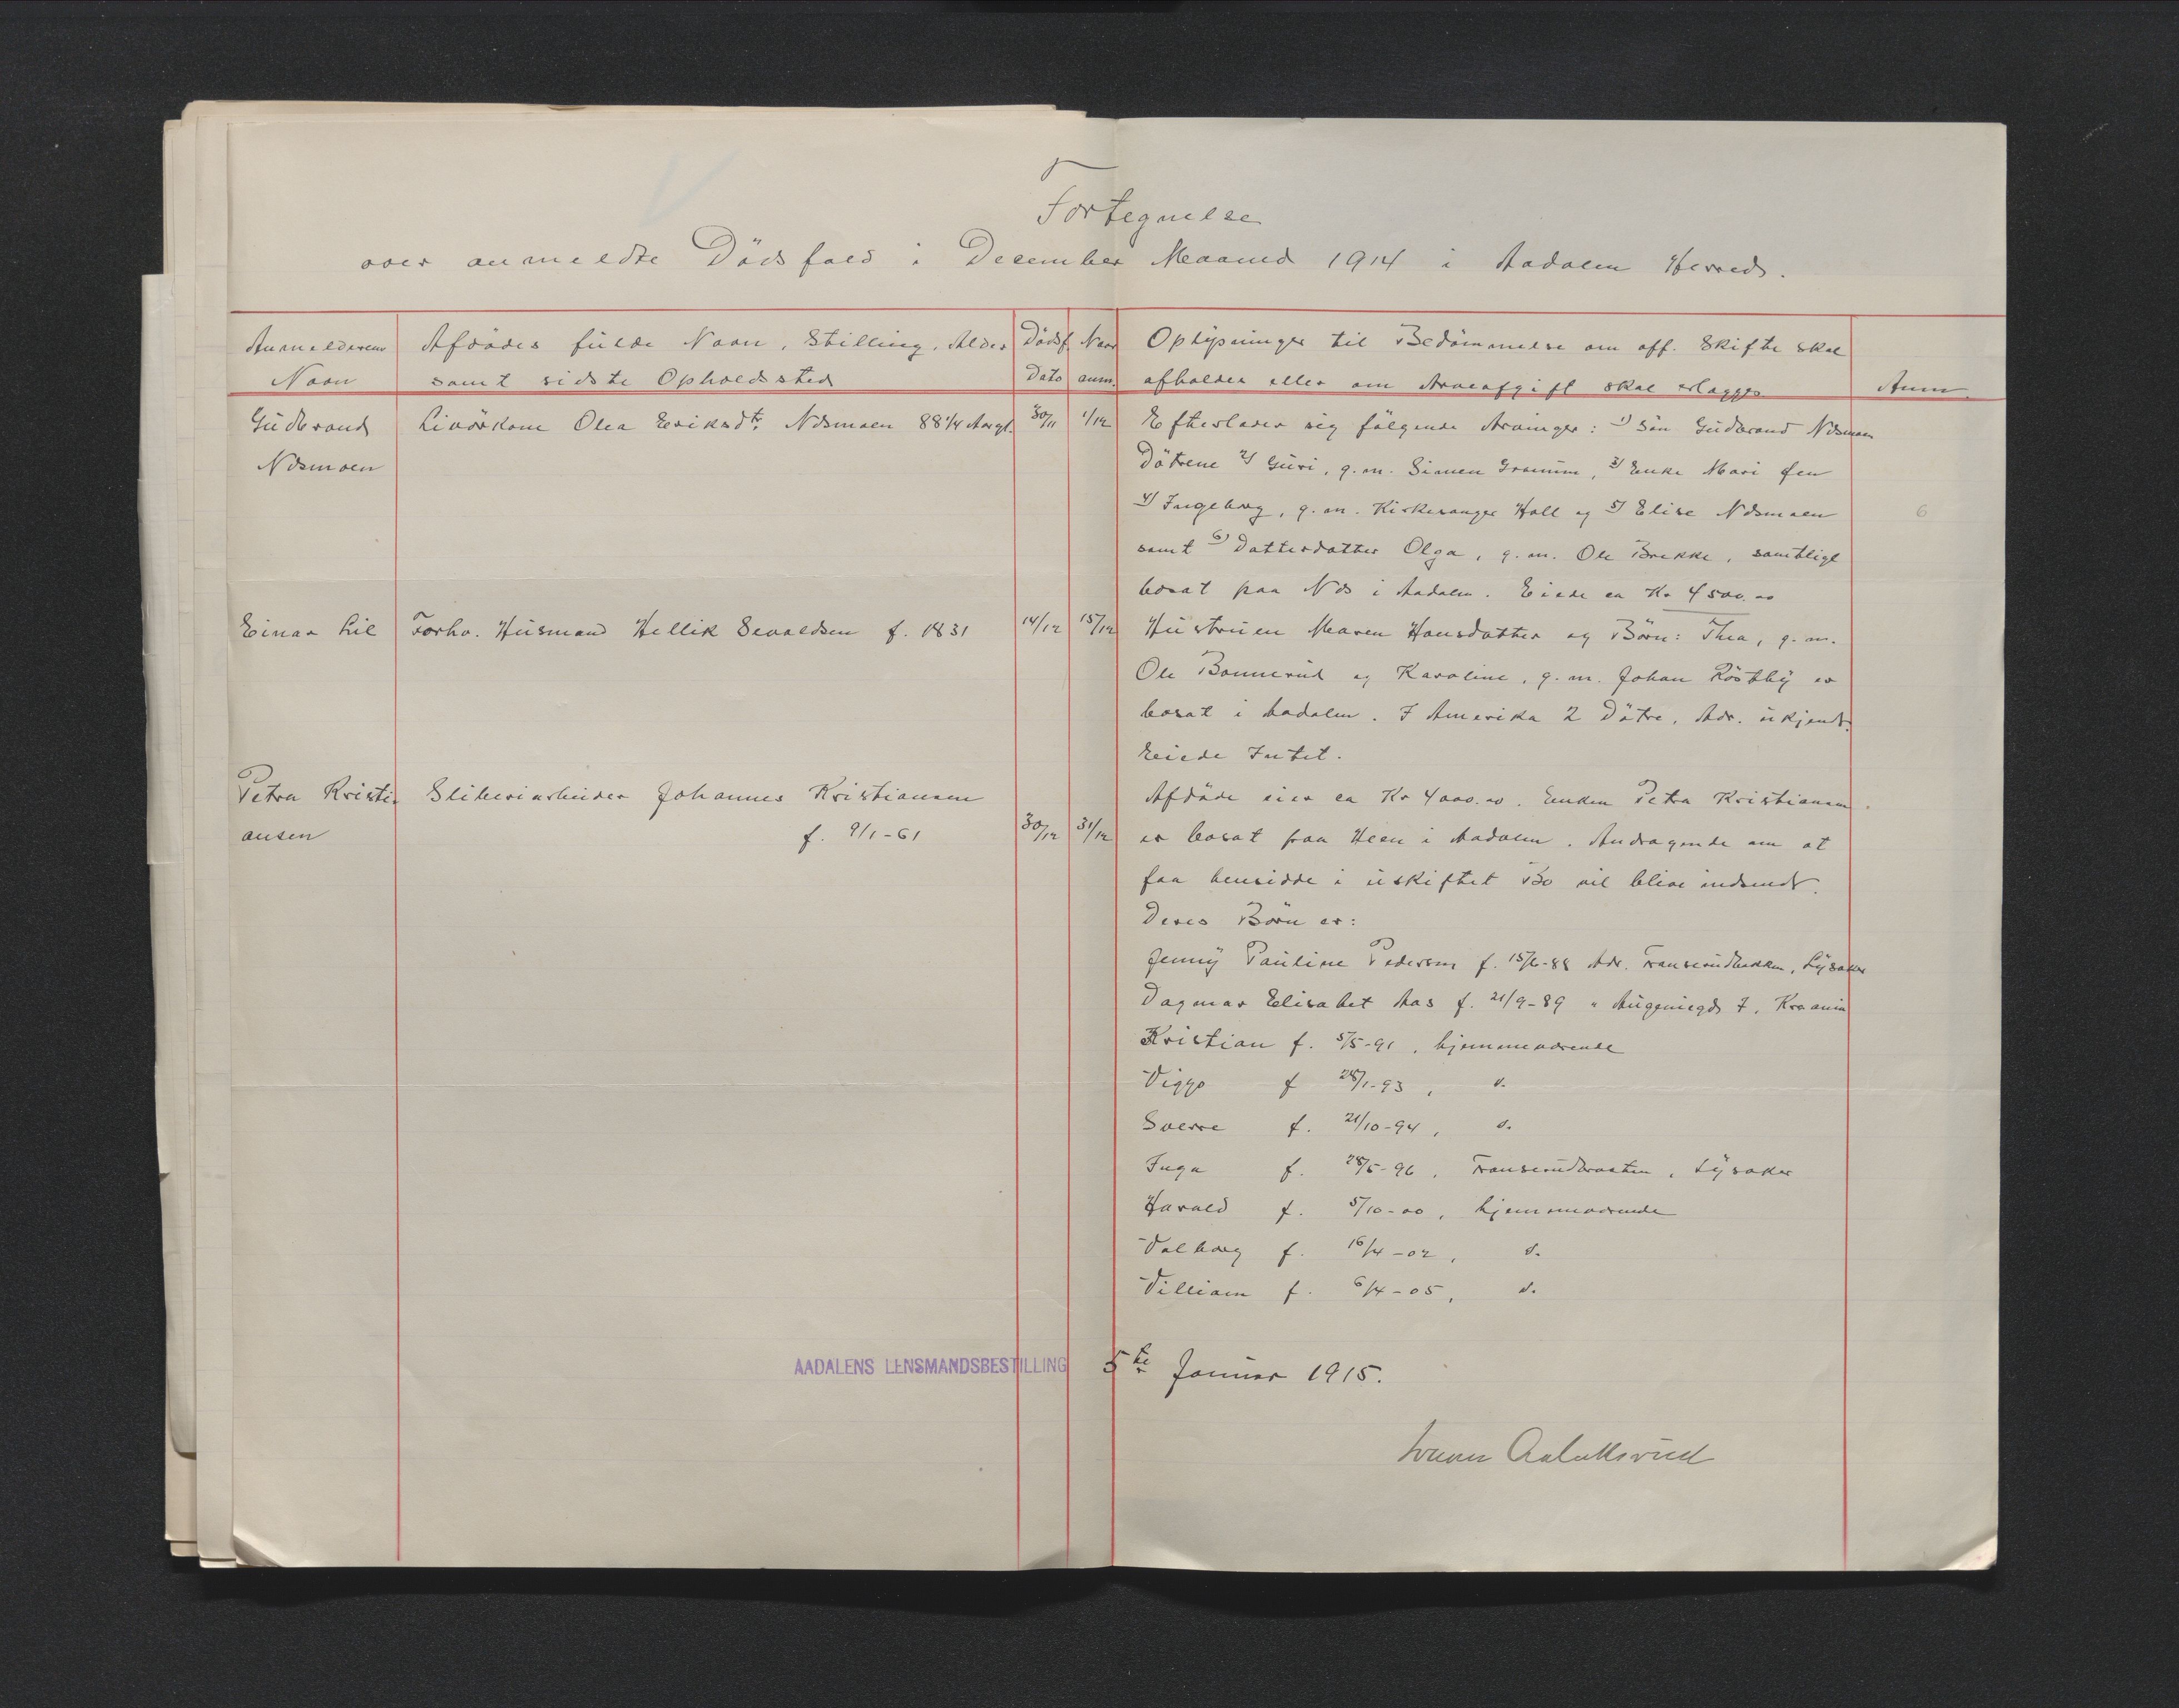 Fortegnelse
over anmeldte Dödsfald i December Maaned 1914 i Aadalen Herred.
Anmelderens Navn
Afdödes fulde Navn, Stilling, Alder samt sidste Opholdssted
Dödsf. Dato
Naar anm.
Oplysninger til Bedömmelse om off. Skifte skal afholdes eller om Arveafgift skal erlægges
Anm.
Gudbrand Næsmoen
Livörkone Olea Eriksdtr. Næsmoen 88 1/4 Aar gl.
30/11
1/12
Efterlader sig fölgende Arvinger: 1) Sön Gudbrand Næsmoen
Dötrene 2) Guri, g.m. Simen 3) Enke Mari
4) Ingeborg, g.m. Kirkesanger Hall og 5) Elise Næsmoen
samt 6) Datterdatter Olga, g.m. Ole Brekke, samtlige
bosat paa Næs i Aadalen. Eiede ca Kr 4500.00
6
Einar Lil
Forhv. Husmand Hellik Sevaldsen f. 1831
14/12
15/12
Hustruen Maren Hansdatter og Börn: Thea, g.m.
Ole Bonnerud og Karoline, g.m. Johan Röstby er
bosat i Aadalen. I Amerika 2 Dötre, Adr. ukjendt.
Eiede Intet.
Petra Kristi
ansen
Sliberiarbeider Johannes Kristiansen
f. 9/1-61
30/12
31/12
Afdöde eier ca Kr 4000.00. Enken Petra Kristiansen
er bosat paa Heen i Aadalen. Andragende om at
faa hensidde i uskiftet Bo vil blive indsendt.
Deres Börn er:
Jenny Pauline Pedersen f. 15/6-88 Adr. Lysaker
Dagmar Elisabet Aas f. 21/9-89 " 7, Kraania
Kristian f. 5/5-91, hjemmeværende
Viggo f 28/1-93, d.
Sverre f. 21/10-94, d.
Inga f. 28/5-96, Lysaker
Harald f. 5/10-00, hjemmeværende
Valborg f. 16/4-02, d.
Villiam f. 6/4-05, d.
AADALENS LENSMANDSBESTILLING 5te Januar 1915.